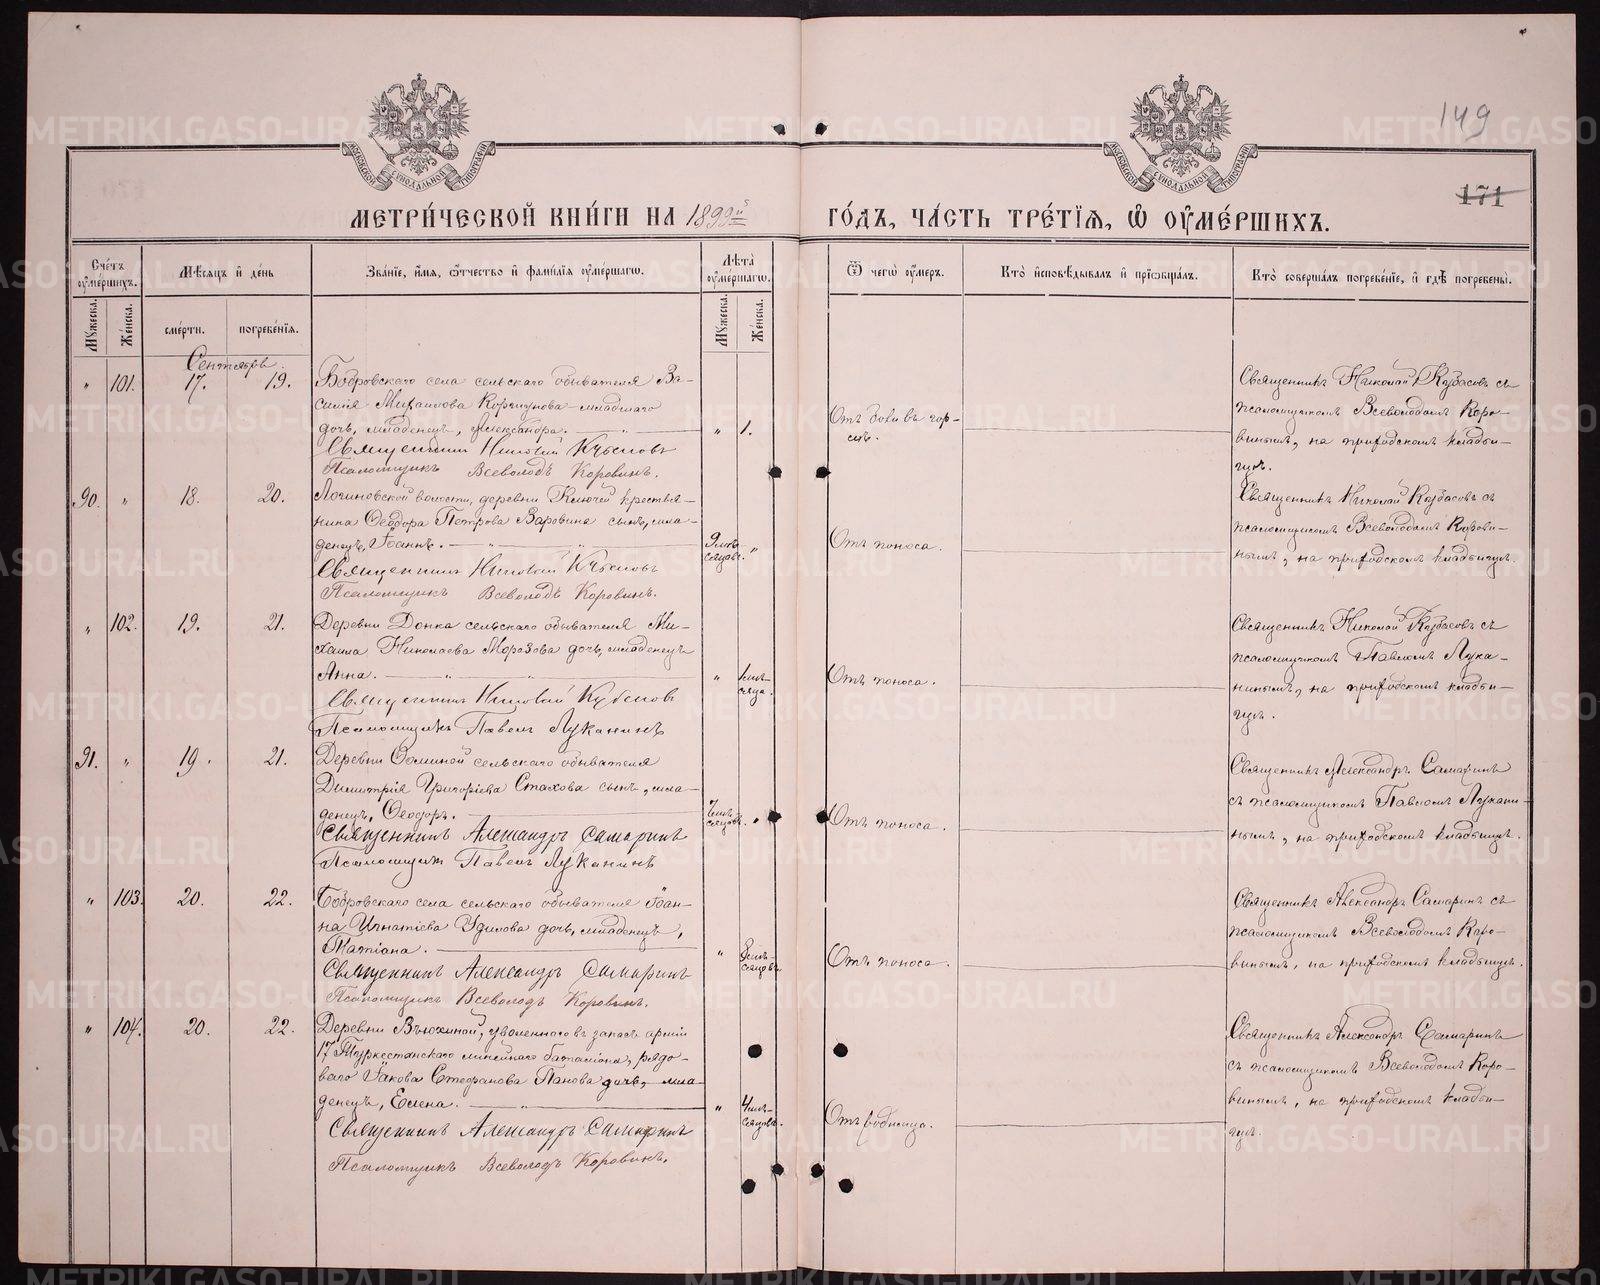 149
171
МЕТРИ́ЧЕСКОЙ КНИ́ГИ НА 1899й
ГО́ДЪ, ЧА́СТЬ ТРЕ́ТІѦ, Ѡ҆ ОУ҆МЕ́РШИХЪ.
МОСКОВСКОЙ СѴНОДАЛЬНОЙ ТИПОГРАФІИ
МОСКОВСКОЙ СѴНОДАЛЬНОЙ ТИПОГРАФІИ
Сче́тъ оумершихъ.
Мѣсяцъ и день
Зва́ніе, имя, отчество и фамилія оумершаго.
Лѣта оумершагѡ.
Ѿ чегѡ оумеръ.
Кто исповѣдывалъ и пріѡбщалъ.
Кто совершалъ погребеніе, и гдѣ погребены.
Мужеска.
Женска.
смерти.
погребенія.
Мужеска.
Женска.
Сентябрь.
" 101. 17. 19. Бобровскаго села сельскаго обывателя Ва-
силія Михаилова Коршунова младшаго
дочь, младенецъ, Александра. " 1.
Священникъ Николай
Псаломщикъ Всеволодъ Коровинъ.
От боли въ гор-
лѣ.
Священникъ Николай съ
псаломщикомъ Всеволодомъ Коро-
винымъ, на приходскомъ кладби-
щѣ.
90. " 18. 20. Логиновской волости, деревни Ключей крестья-
нина Ѳеодора Петрова Варовина сынъ, мла-
денецъ, Іоаннъ. 9 мѣ-
сяцовъ. "
Священникъ Николай
Псаломщикъ Всеволодъ Коровинъ.
Отъ поноса.
Священникъ Николай съ
псаломщикомъ Всеволодомъ Корови-
нымъ, на приходскомъ кладбищѣ.
" 102. 19. 21. Деревни Донка сельскаго обывателя Ми-
хаила Николаева Морозова дочь, младенецъ
Анна. " 1 мѣ-
сяца.
Священникъ Николай
Псаломщикъ Павелъ Луканинъ
Отъ поноса.
Священникъ Николай съ
псаломщикомъ Павломъ Лука-
нинымъ, на приходскомъ кладби-
щѣ.
91. " 19. 21. Деревни Ѳоминой сельскаго обывателя
Димитрія Григоріева Стахова сынъ, мла-
денецъ, Ѳеодоръ. мѣ-
сяцовъ. "
Священникъ Александръ Самаринъ
Псаломщикъ Павелъ Луканинъ
Отъ поноса.
Священникъ Александръ Самаринъ
съ псаломщикомъ Павломъ Лукани-
нымъ, на приходскомъ кладбищѣ.
" 103. 20. 22. Бобровскаго села сельскаго обывателя Іоан-
на Игнатіева Удилова дочь, младенецъ,
Татіана. " 8 мѣ-
сяцовъ
Священникъ Александръ Самаринъ
Псаломщикъ Всеволодъ Коровинъ.
Отъ поноса.
Священникъ Александръ Самаринъ съ
псаломщикомъ Всеволодомъ Коро-
винымъ, на приходскомъ кладбищѣ.
" 104. 20. 22. Деревни Вьюхиной, уволеннаго въ запасъ арміи
17 Туркестанскаго линейнаго баталіона, рядо-
ваго Іакова Стефанова Панова дочь, мла-
денецъ, Елена. " 4 мѣ-
сяцовъ.
Священникъ Александръ Самаринъ
Псаломщикъ Всеволодъ Коровинъ.
Отъ родимца.
Священникъ Александръ Самаринъ
съ псаломщикомъ Всеволодомъ Коро-
винымъ, на приходскомъ кладби-
щѣ.
METRIKI.GASO-URAL.RU